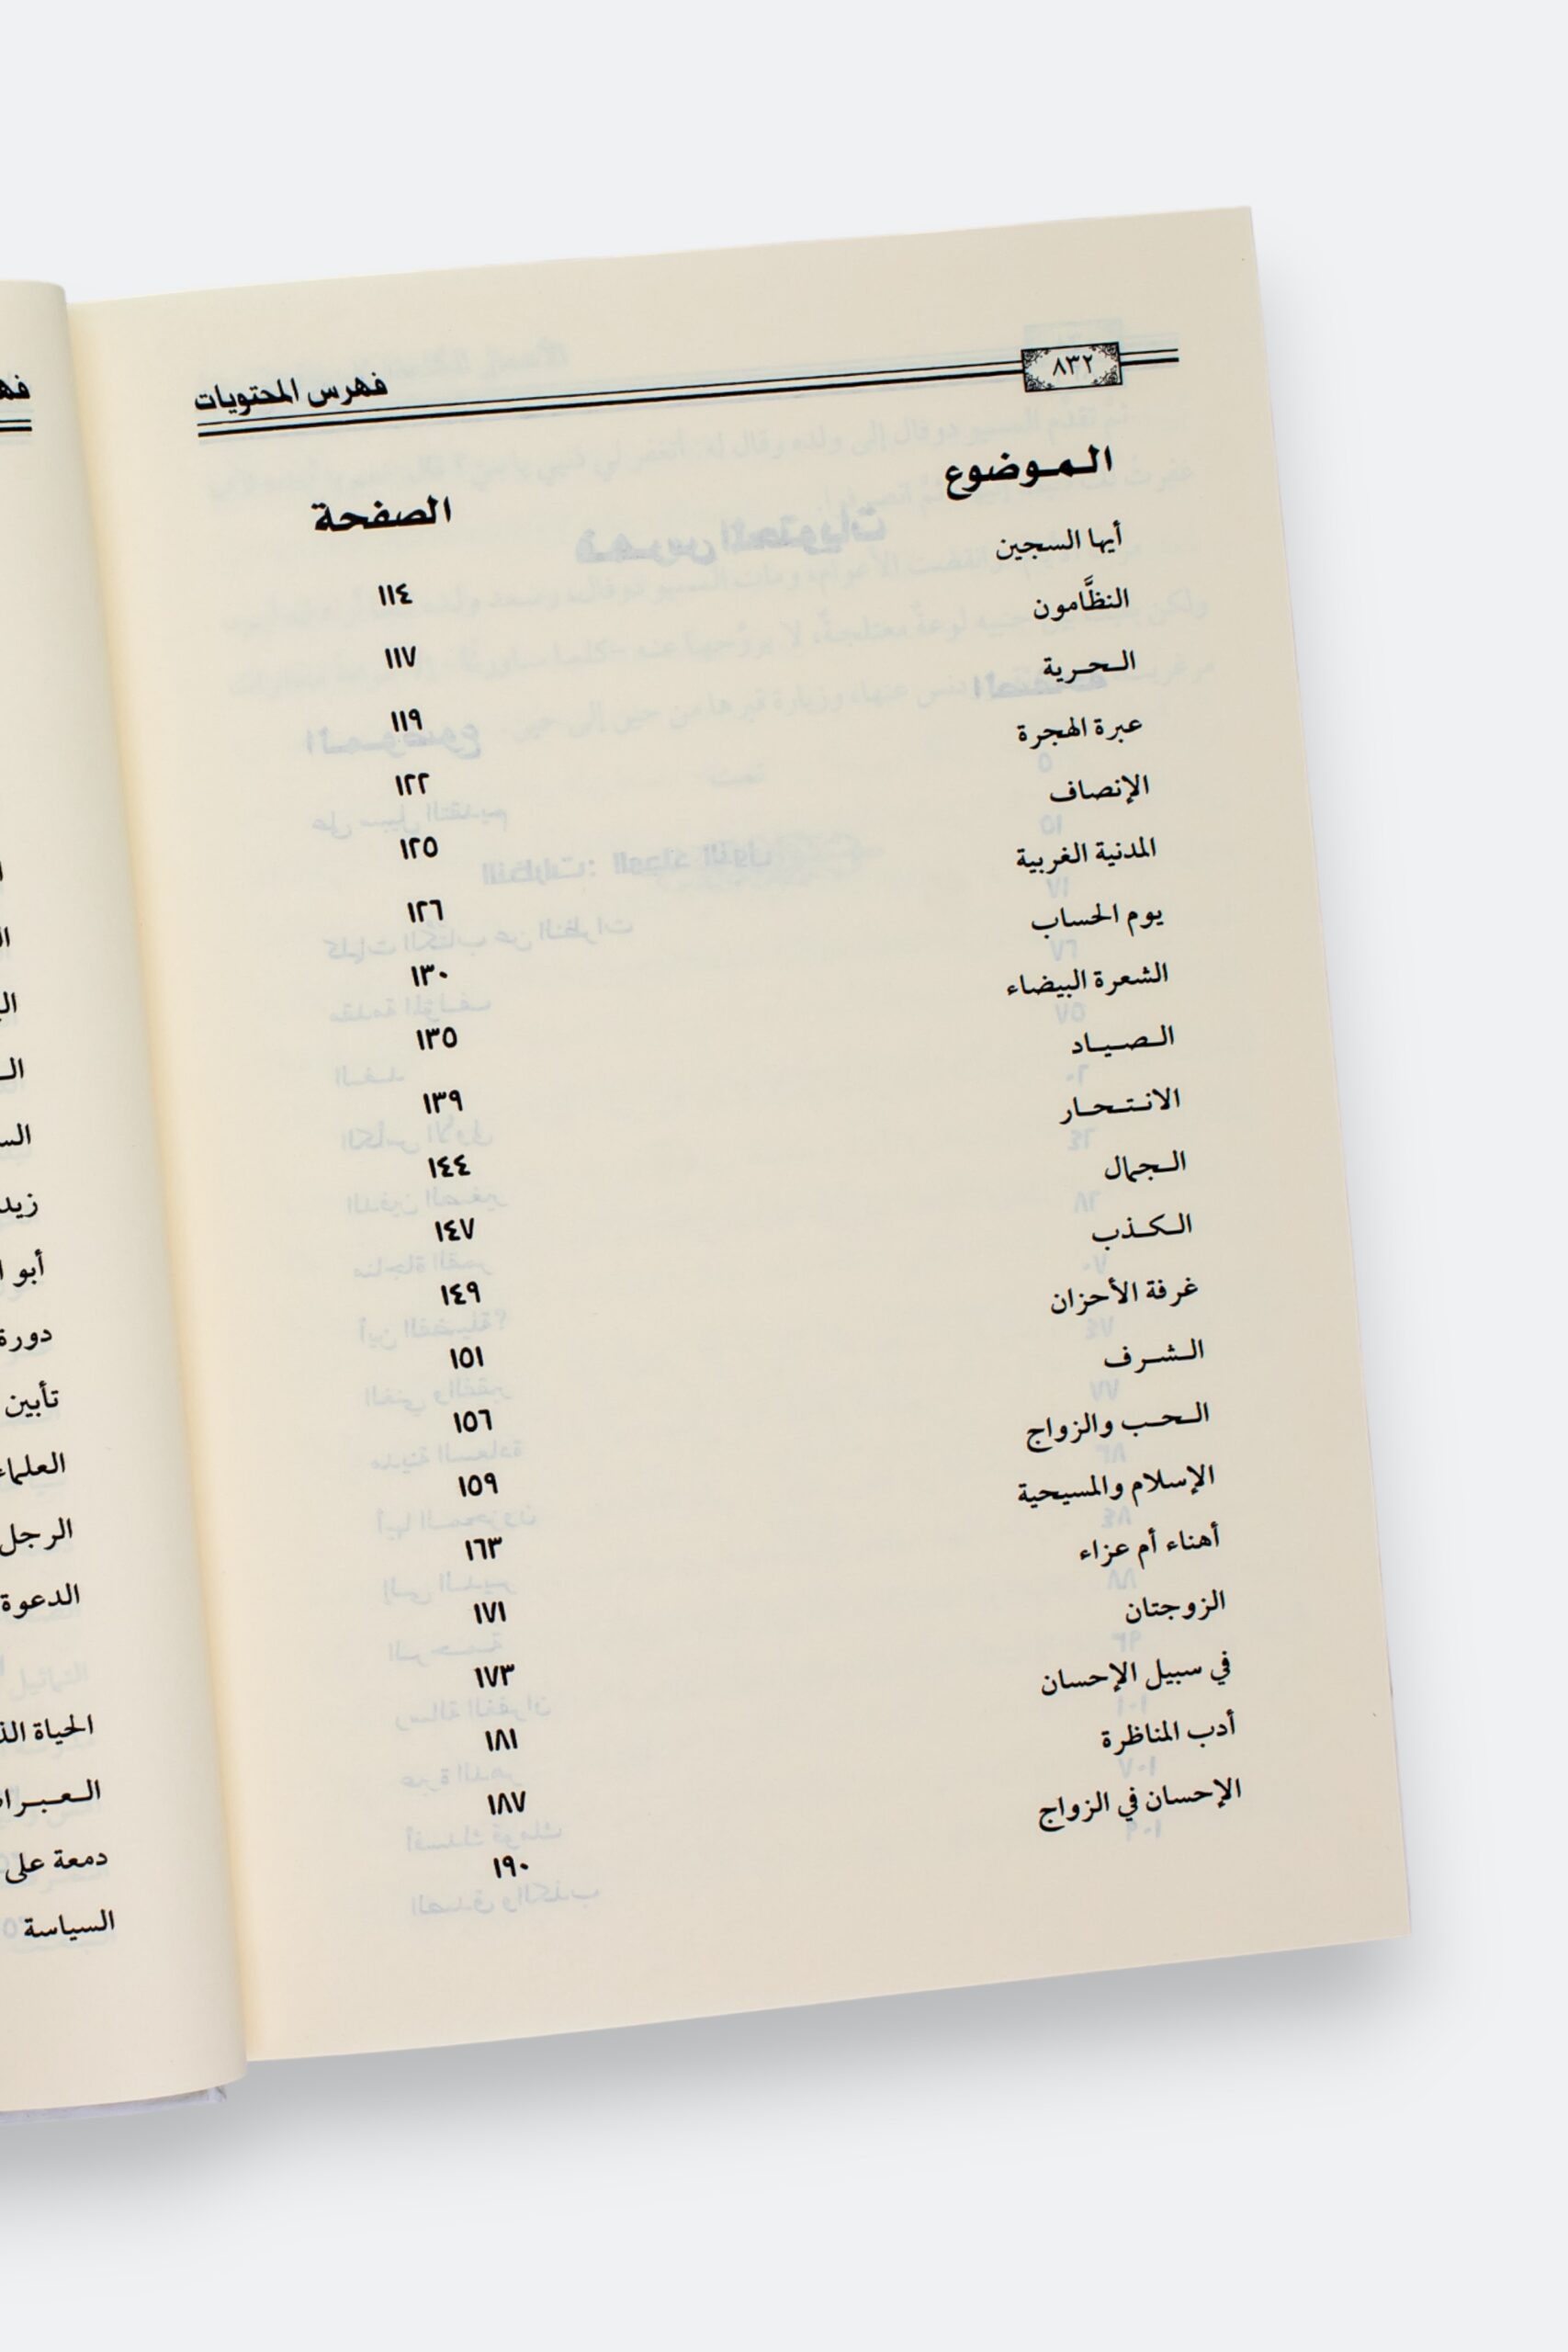 ٨٣٢ فهرس المحتويات
الموضوع الصفحة
أيها السجين ١١٤
النظَّامون ١١٧
الحرية ١١٩
عبرة الهجرة ١٢٢
الإنصاف ١٢٥
المدنية الغربية ١٢٦
يوم الحساب ١٣٠
الشعرة البيضاء ١٣٥
الصياد ١٣٩
الانتحار ١٤٤
الجمال ١٤٧
الكذب ١٤٩
غرفة الأحزان ١٥١
الشرف ١٥٦
الحب والزواج ١٥٩
الإسلام والمسيحية ١٦٣
أهناء أم عزاء ١٧١
الزوجتان ١٧٣
في سبيل الإحسان ١٨١
أدب المناظرة ١٨٧
الإحسان في الزواج ١٩٠
أبو
دورة
تأبين
العلماء
الرجل
الدعوة
الحياة
دمعة على
السياسة